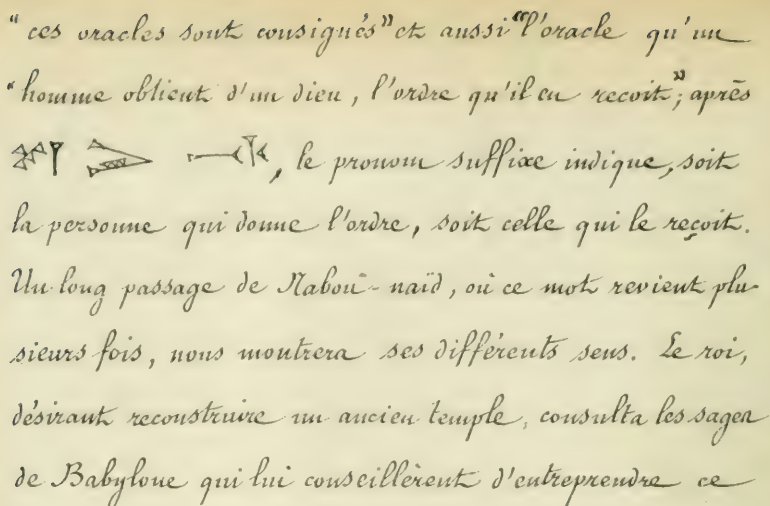 "ces oracles sont consignés" et aussi "l'oracle qu'un
"homme obtient d'un dieu, l'ordre qu'il en reçoit"; après
, le pronom suffixe indique, soit
la personne qui donne l'ordre, soit celle qui le reçoit.
Un long passage de Nabou-naïd, où ce mot revient plu-
sieurs fois, nous montrera ses différents sens. Le roi,
désirant reconstruire un ancien temple, consulta les sages
de Babylone qui lui conseillèrent d'entreprendre ce